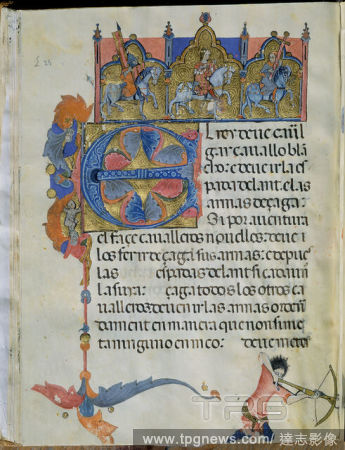 E L rey deue caual
gar cauallo blã
cho: e deue ir la es
pada delant. e las
armas deçaga.
Si por auentura
el façe caualleros nouelles: deue
los ferir deçaga sus armas: e depues
las espadas delant
la suya: çaga todos los otros ca
ualleros: deuen ir las armas orden
dament en manera que non si me
ta ninguno en meo: deue meter
TPG
www.tpgnews.com/ 達志影像